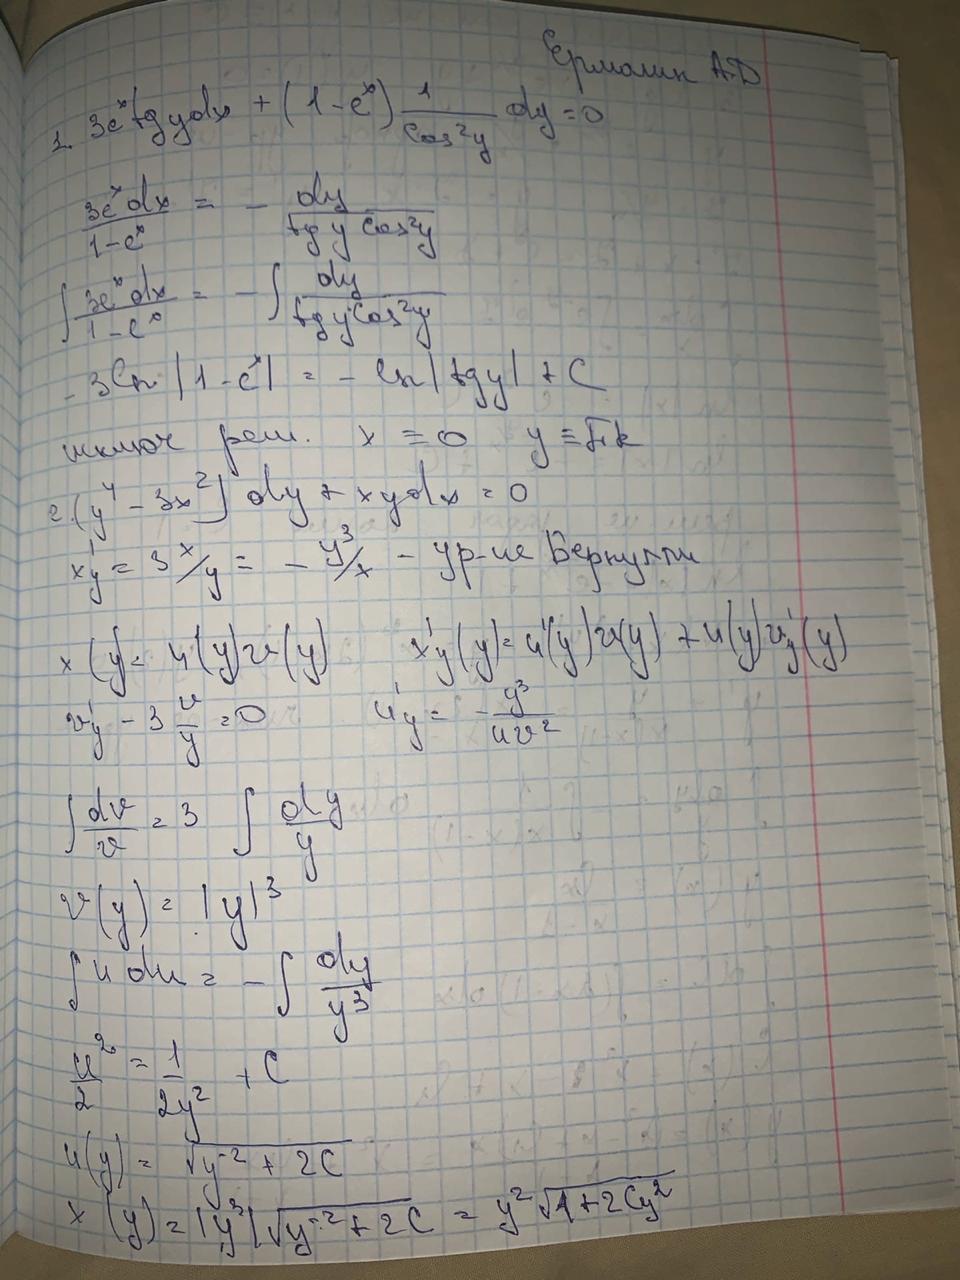 Ермолик А.Д
1. 3eˣtg y dx + (1-eˣ) 1/cos²y dy = 0
3eˣdx/1-eˣ = - dy/tg y cos²y
∫ 3eˣdx/1-eˣ = -∫ dy/tg y cos²y
-3ln|1-eˣ| = -ln|tg y| + C
реш. x ≡ 0 y ≡ πk
2. (y⁴ - 3x²) dy + xydx = 0
x'y = 3 x/y = - y³/x - ур-ие Бернулли
x(y = u(y)v(y) x'y(y) = u'(y)v(y) + u(y)v'y(y)
v'y - 3 v/y = 0 u'y = - y³/uv²
∫ dv/v = 3 ∫ dy/y
v(y) = |y|³
∫ u du = -∫ dy/y³
u²/2 = 1/2y² + C
u(y) = √y⁻² + 2C
x(y) = |y³|√y⁻² + 2C = y²√1+2Cy²